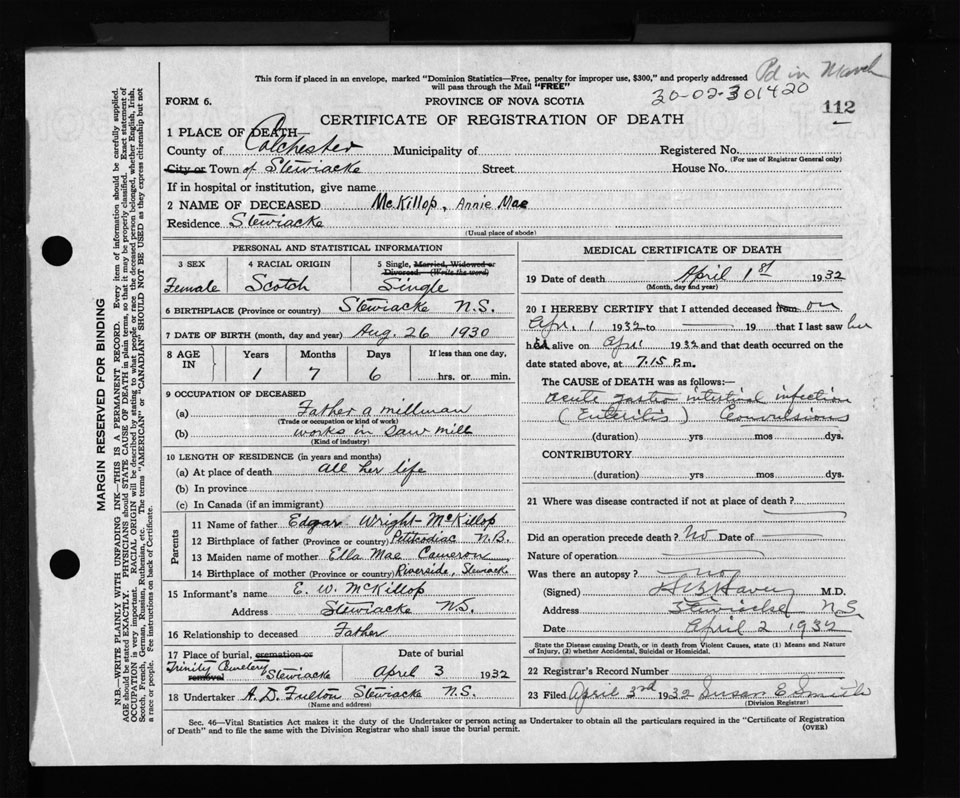 Pd in March
This form if placed in an envelope, marked "Dominion Statistics—Free, penalty for improper use, $300," and properly addressed
will pass through the Mail "FREE"
20-02-301420
FORM 6.
PROVINCE OF NOVA SCOTIA
112
CERTIFICATE OF REGISTRATION OF DEATH
1 PLACE OF DEATH—
County of Colchester Municipality of Registered No.
(For use of Registrar General only)
City or Town of Stewiacke Street House No.
If in hospital or institution, give name
2 NAME OF DECEASED McKillop, Annie Mae
Residence Stewiacke
(Usual place of abode)
PERSONAL AND STATISTICAL INFORMATION
3 SEX 4 RACIAL ORIGIN 5 Single, Married, Widowed or Divorced. (Write the word)
Female Scotch Single
6 BIRTHPLACE (Province or country) Stewiacke N.S.
7 DATE OF BIRTH (month, day and year) Aug. 26 1930
8 AGE IN Years Months Days If less than one day,
1 7 6 hrs. or min.
9 OCCUPATION OF DECEASED
(a) Father a millman
(Trade or occupation or kind of work)
(b) works in Saw mill
(Kind of industry)
10 LENGTH OF RESIDENCE (in years and months)
(a) At place of death all her life
(b) In province
(c) In Canada (if an immigrant)
Parents
11 Name of father Edgar Wright McKillop
12 Birthplace of father (Province or country) Petitcodiac N.B.
13 Maiden name of mother Ella Mae Cameron
14 Birthplace of mother (Province or country) Riverside, Stewiacke
15 Informant's name E. W. McKillop
Address Stewiacke N.S.
16 Relationship to deceased Father
17 Place of burial, cremation or removal Date of burial
Trinity Cemetery Stewiacke April 3 1932
18 Undertaker A. D. Fulton Stewiacke N.S.
(Name and address)
MEDICAL CERTIFICATE OF DEATH
19 Date of death April 1st 1932
(Month, day and year)
20 I HEREBY CERTIFY that I attended deceased from on
Apr. 1 1932 to — 19 that I last saw her
alive on Apr 1932 and that death occurred on the
date stated above, at 7.15 P.m.
The CAUSE OF DEATH was as follows:—
acute gastro intestinal infection
(Enteritis) Convulsions
(duration) yrs mos dys.
CONTRIBUTORY
(duration) yrs mos dys.
21 Where was disease contracted if not at place of death?
Did an operation precede death? No Date of
Nature of operation
Was there an autopsy? no
(Signed) M.D.
Address Stewiacke N S
Date April 2 1932
State the Disease causing Death, or in death from Violent Causes, state (1) Means and Nature
of Injury, (2) whether Accidental, Suicidal or Homicidal.
22 Registrar's Record Number
23 Filed April 3rd 1932 Susan E Smith
(Division Registrar)
Sec. 46—Vital Statistics Act makes it the duty of the Undertaker or person acting as Undertaker to obtain all the particulars required in the "Certificate of Registration
of Death" and to file the same with the Division Registrar who shall issue the burial permit.
(OVER)
MARGIN RESERVED FOR BINDING
N.B.—WRITE PLAINLY WITH UNFADING INK—THIS IS A PERMANENT RECORD. Every item of information should be carefully supplied.
AGE should be stated EXACTLY. PHYSICIANS should STATE CAUSE OF DEATH in plain terms, so that it may be properly classified. Exact statement of
OCCUPATION is very important. RACIAL ORIGIN will be described by stating to what people or race the deceased person belonged, whether English, Irish,
Scotch, French, German, Russian, Ruthenian, etc. The terms "AMERICAN" or "CANADIAN" SHOULD NOT BE USED as they express citizenship but not
a race or people. See instructions on back of Certificate.